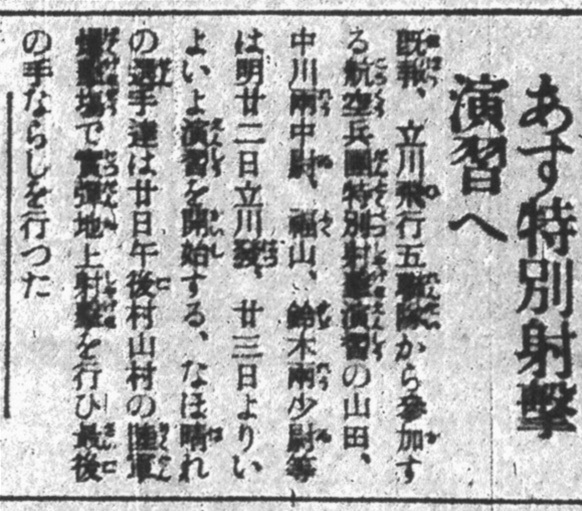 あす特別射撃
演習へ
既報、立川飛行五聯隊から参加す
る航空兵團特別射撃演習の山田、
中川兩中尉、福山、鈴木兩少尉等
は明廿二日立川發、廿三日よりい
よいよ演習を開始する、なほ晴れ
の選手達は廿日午後村山村の陸軍
爆撃場で實彈地上射撃を行ひ最後
の手ならしを行つた